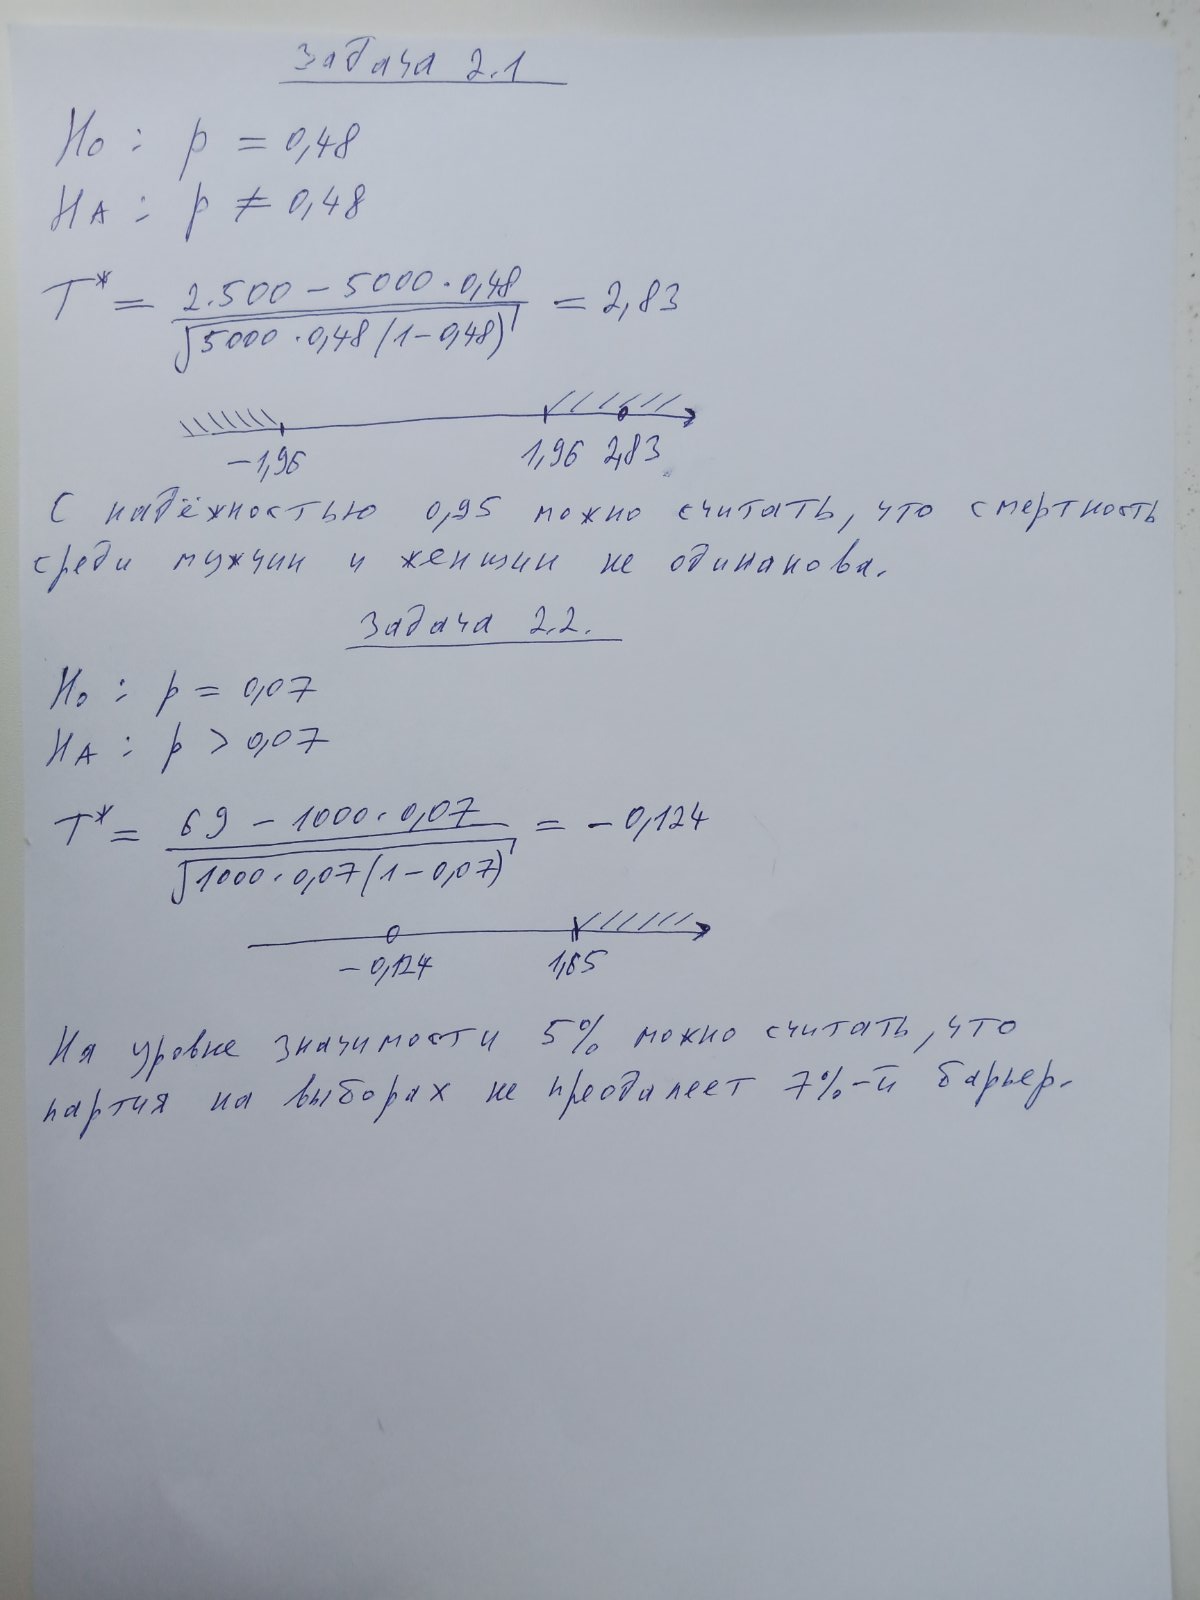 Задача 2.1
H₀ : p = 0,48
H_A : p ≠ 0,48
T* = (2.500 – 5000 · 0,48) / √(5000 · 0,48 (1 – 0,48)) = 2,83
–1,96 1,96 2,83
С надёжностью 0,95 можно считать, что смертность
среди мужчин и женщин не одинакова.
Задача 2.2.
H₀ : p = 0,07
H_A : p > 0,07
T* = (69 – 1000 · 0,07) / √(1000 · 0,07 (1 – 0,07)) = – 0,124
– 0,124 1,65
На уровне значимости 5% можно считать, что
партия на выборах не преодалеет 7%-й барьер.